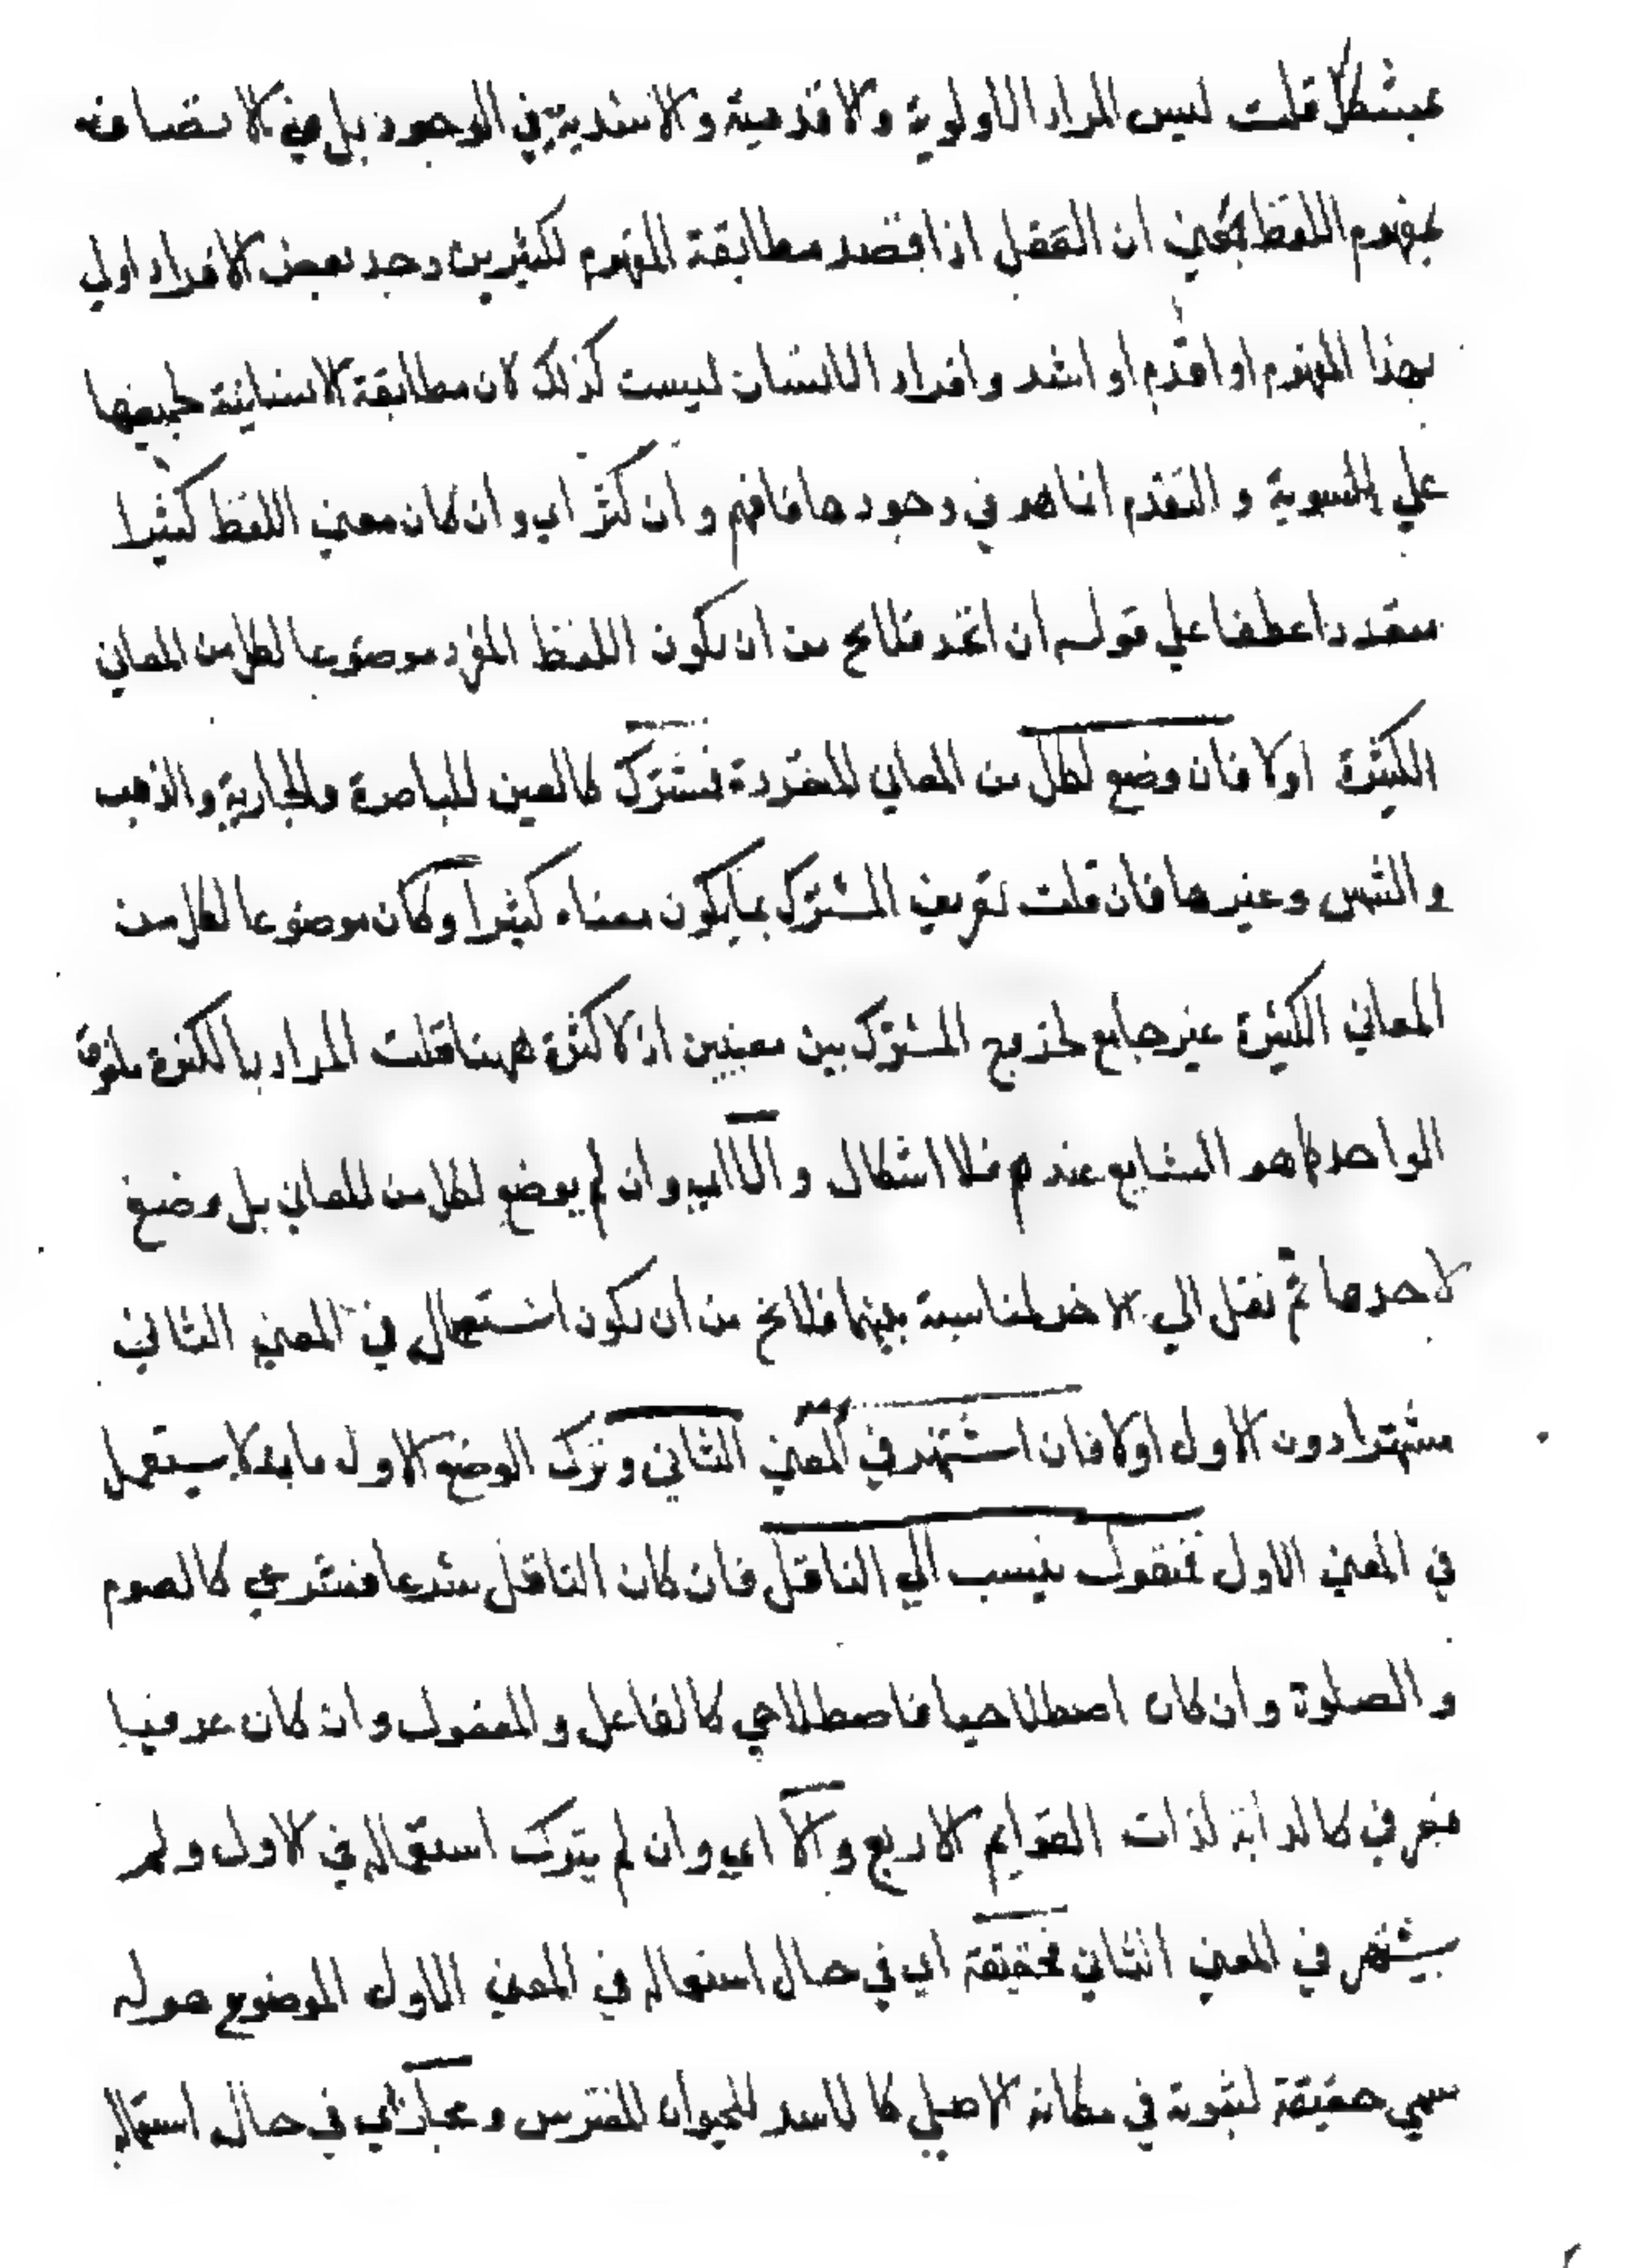 بمشكل قلت ليس المراد الاولوية والاقدمية والاشدية في الوجود بل في الاتصافه
بمفهوم اللفظ بمعني ان العقل اذا قصد مطابقة المفهوم لكثيرين وجد بعض الافراد اولي
بهذا المفهوم او اقدم او اشد وافراد الانسان ليست كذلك لان مطابقة الانسانية لجميعها
علي السوية والتقدم انما هو في وجودها فافهم وان كثر اي وان كان معني اللفظ كثيرا
متعددا عطفا علي قوله ان اتحد فلا يخ من ان يكون اللفظ المفرد موضوعا لكل من المعاني
الكثيرة اولا فان وضع لكل من المعاني المتعددة فمشترك كالعين للباصرة والجارية والذهب
والشمس وغيرها فان قلت تعريف المشترك بما يكون معناه كثيرا وكان موضوعا لكل من
المعاني الكثيرة غير جامع لخروج المشترك بين معنيين اذ لا كثرة ههنا قلت المراد بالكثرة ما فوق
الواحد كما هو الشايع عندهم فلا اشكال والا اي وان لم يوضع لكل من المعاني بل وضع
لاحدها ثم نقل الي الاخر لمناسبة بينهما فلا يخ من ان يكون استعماله في المعني الثاني
مشتهرا دون الاول اولا فان اشتهر في المعني الثاني وترك الوضع الاول بان لا يستعمل
في المعني الاول فمنقول ينسب الي الناقل فان كان الناقل شرعا فشرعي كالصوم
والصلوة وان كان اصطلاحيا فاصطلاحي كالفاعل والمفعول وان كان عرفيا
فعرفي كالدابة لذات القوايم الاربع والا اي وان لم يترك استعماله في الاول ولم
يشتهر في المعني الثاني فحقيقة اي في حال استعماله في المعني الاول الموضوع هو له
سمي حقيقة لثبوته في مكانه الاصلي كالاسد للحيوان المفترس ومجاز اي في حال استعماله